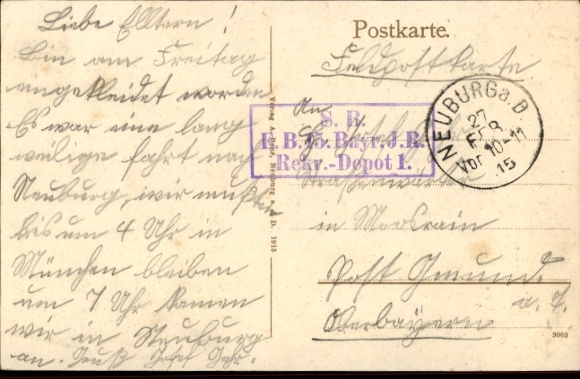 Liebe Elltern!
Bin am Freitag
eingekleidet worden
Es war eine lang
weilige fahrt nach
Neuburg, wir mußten
bis um 4 Uhr in
München bleiben
um 7 Uhr kamen
wir in Neuburg
an. Gruß Josef
Postkarte.
Feldpostkarte
An
S. B.
E. B. 15. Bayr. J. R.
Rekr.-Depot 1.
NEUBURG a. D.
27
FEB
Vor 10-11
15
Straßenwärter
in Moosrain
Post Gmund.
a. T.
Oberbayern
Neuburg a. D. 1913